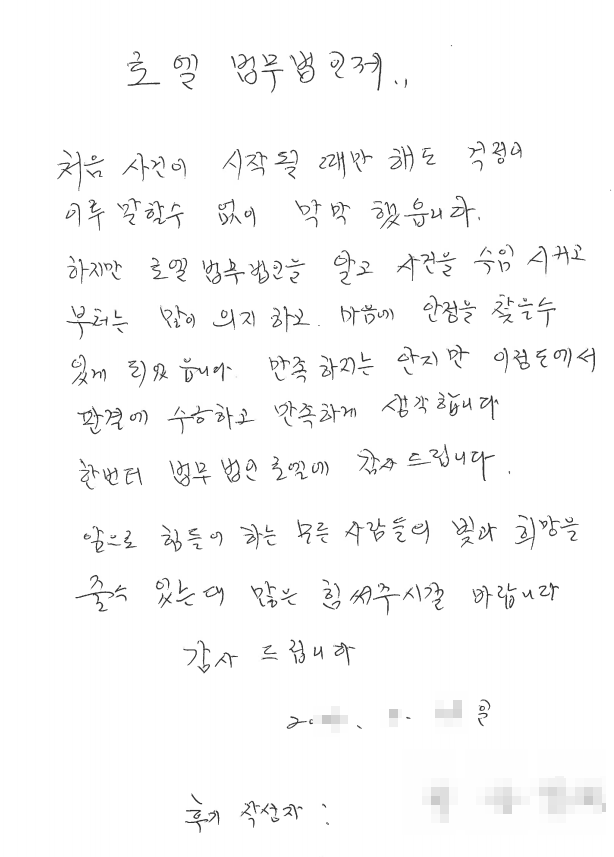 로엘 법무법인께..
처음 사건이 시작될 때만 해도 걱정이
이루 말할수 없이 막막 했읍니다.
하지만 로엘 법무법인을 알고 사건을 수임 시키고
부터는 많이 의지 하고. 마음에 안정을 찾을수
있게 되었읍니다. 만족 하지는 안지만 이정도에서
판결에 수승하고 만족하게 생각합니다
한번더 법무 법인 로엘에 감사 드립니다.
앞으로 힘들어 하는 모른 사람들의 빛과 희망을
줄수 있는데 많은 힘써주시길 바랍니다
감사 드립니다
20 . . 일
후기 작성자 :